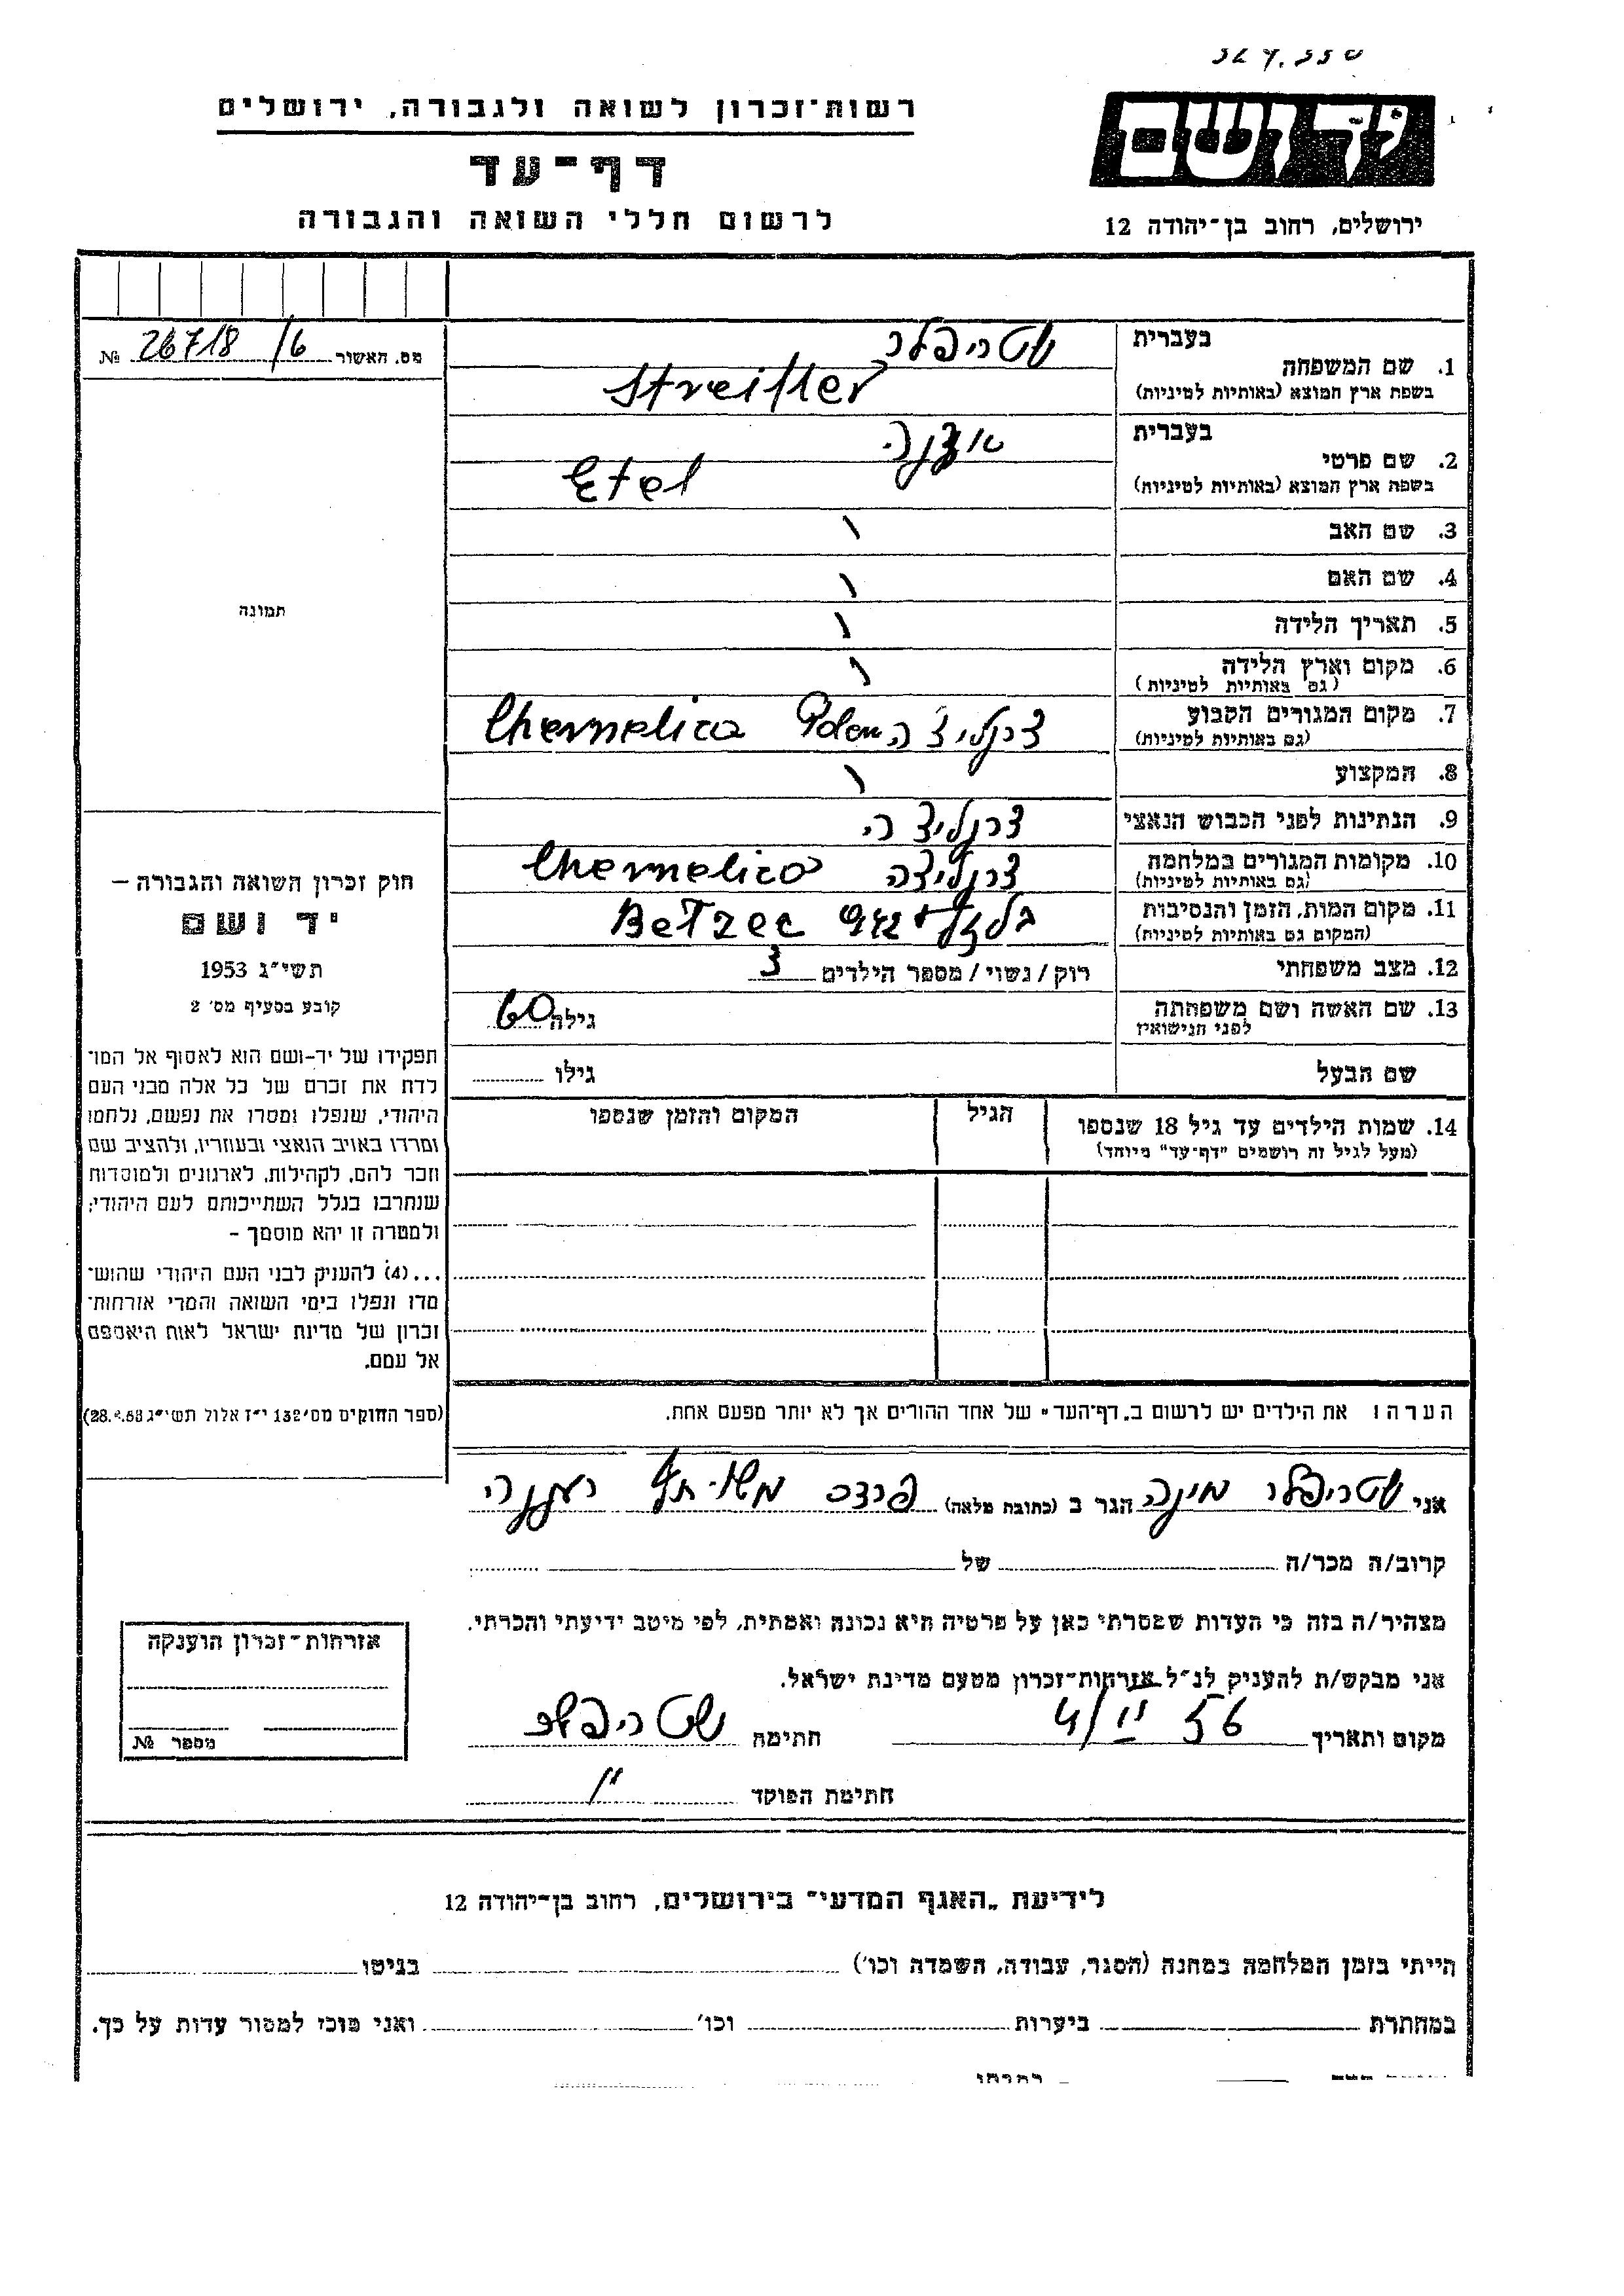 רשות־זכרון לשואה ולגבורה, ירושלים
דף־עד
לרשום חללי השואה והגבורה
יד ושם
ירושלים, רחוב בן־יהודה 12
מס. האשור 26718/6 №
תמונה
חוק זכרון השואה והגבורה –
יד ושם
תשי״ג 1953
קובע בסעיף מס׳ 2
תפקידו של יד-ושם הוא לאסוף אל המו־
לדת את זכרם של כל אלה מבני העם
היהודי, שנפלו ומסרו את נפשם, נלחמו
ומרדו באויב הנאצי ובעוזריו, ולהציב שם
וזכר להם, לקהילות, לארגונים ולמוסדות
שנחרבו בגלל השתייכותם לעם היהודי;
ולמטרה זו יהא מוסמך –
...(4) להעניק לבני העם היהודי שהוש־
מדו ונפלו בימי השואה והמרי אזרחות־
זכרון של מדינת ישראל לאות היאספם
אל עמם.
(ספר החוקים מס׳ 132 י״ז אלול תשי״ג 28.8.53)
בעברית שטריפלר
1. שם המשפחה
בשפת ארץ המוצא (באותיות לטיניות) Streifler
בעברית
2. שם פרטי
בשפת ארץ המוצא (באותיות לטיניות) Etel
3. שם האב
4. שם האם
5. תאריך הלידה
6. מקום וארץ הלידה
(גם באותיות לטיניות)
7. מקום המגורים הקבוע Chemelica
(גם באותיות לטיניות)
8. המקצוע
9. הנתינות לפני הכבוש הנאצי
10. מקומות המגורים במלחמה Chemelico
(גם באותיות לטיניות)
11. מקום המות, הזמן והנסיבות Betzec
(המקום גם באותיות לטיניות)
12. מצב משפחתי רוק / נשוי / מספר הילדים 3
13. שם האשה ושם משפחתה גילה 60
לפני הנישואין
שם הבעל גילו
14. שמות הילדים עד גיל 18 שנספו הגיל המקום והזמן שנספו
(מעל לגיל זה רושמים "דף־עד" מיוחד)
הערה: את הילדים יש לרשום ב„דף־העד" של אחד ההורים אך לא יותר מפעם אחת.
אני שטריפלר מינה הגר ב (כתובת מלאה) פרדס רעננה
קרוב/ה מכר/ה של
מצהיר/ה בזה כי העדות שמסרתי כאן על פרטיה היא נכונה ואמתית, לפי מיטב ידיעתי והכרתי.
אני מבקש/ת להעניק לנ״ל אזרחות־זכרון מטעם מדינת ישראל.
מקום ותאריך 4/II 56 חתימה שטריפלר
חתימת הפוקד
אזרחות־זכרון הוענקה
מספר №
לידיעת „האגף המדעי" בירושלים, רחוב בן־יהודה 12
הייתי בזמן המלחמה במחנה (הסגר, עבודה, השמדה וכו׳) בגיטו
במחתרת ביערות וכו׳ ואני מוכן למסור עדות על כך.